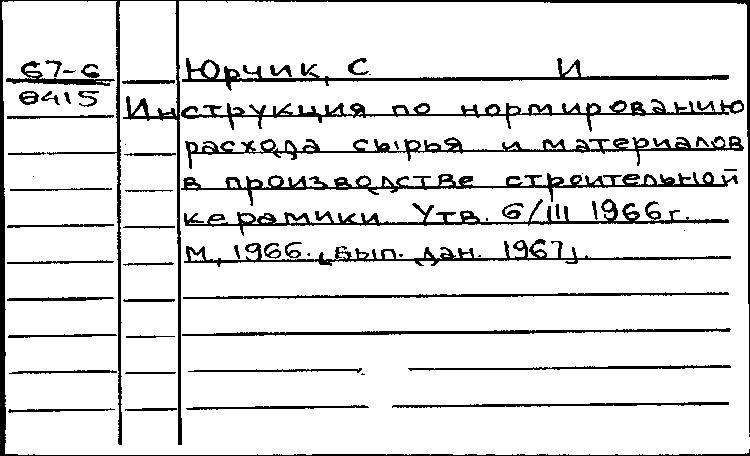 67-6 Юрчик, С И
8415 Инструкция по нормированию
расхода сырья и материалов
в производстве строительной
керамики. Утв. 6/III 1966г.
М., 1966. [Вып. дан. 1967].